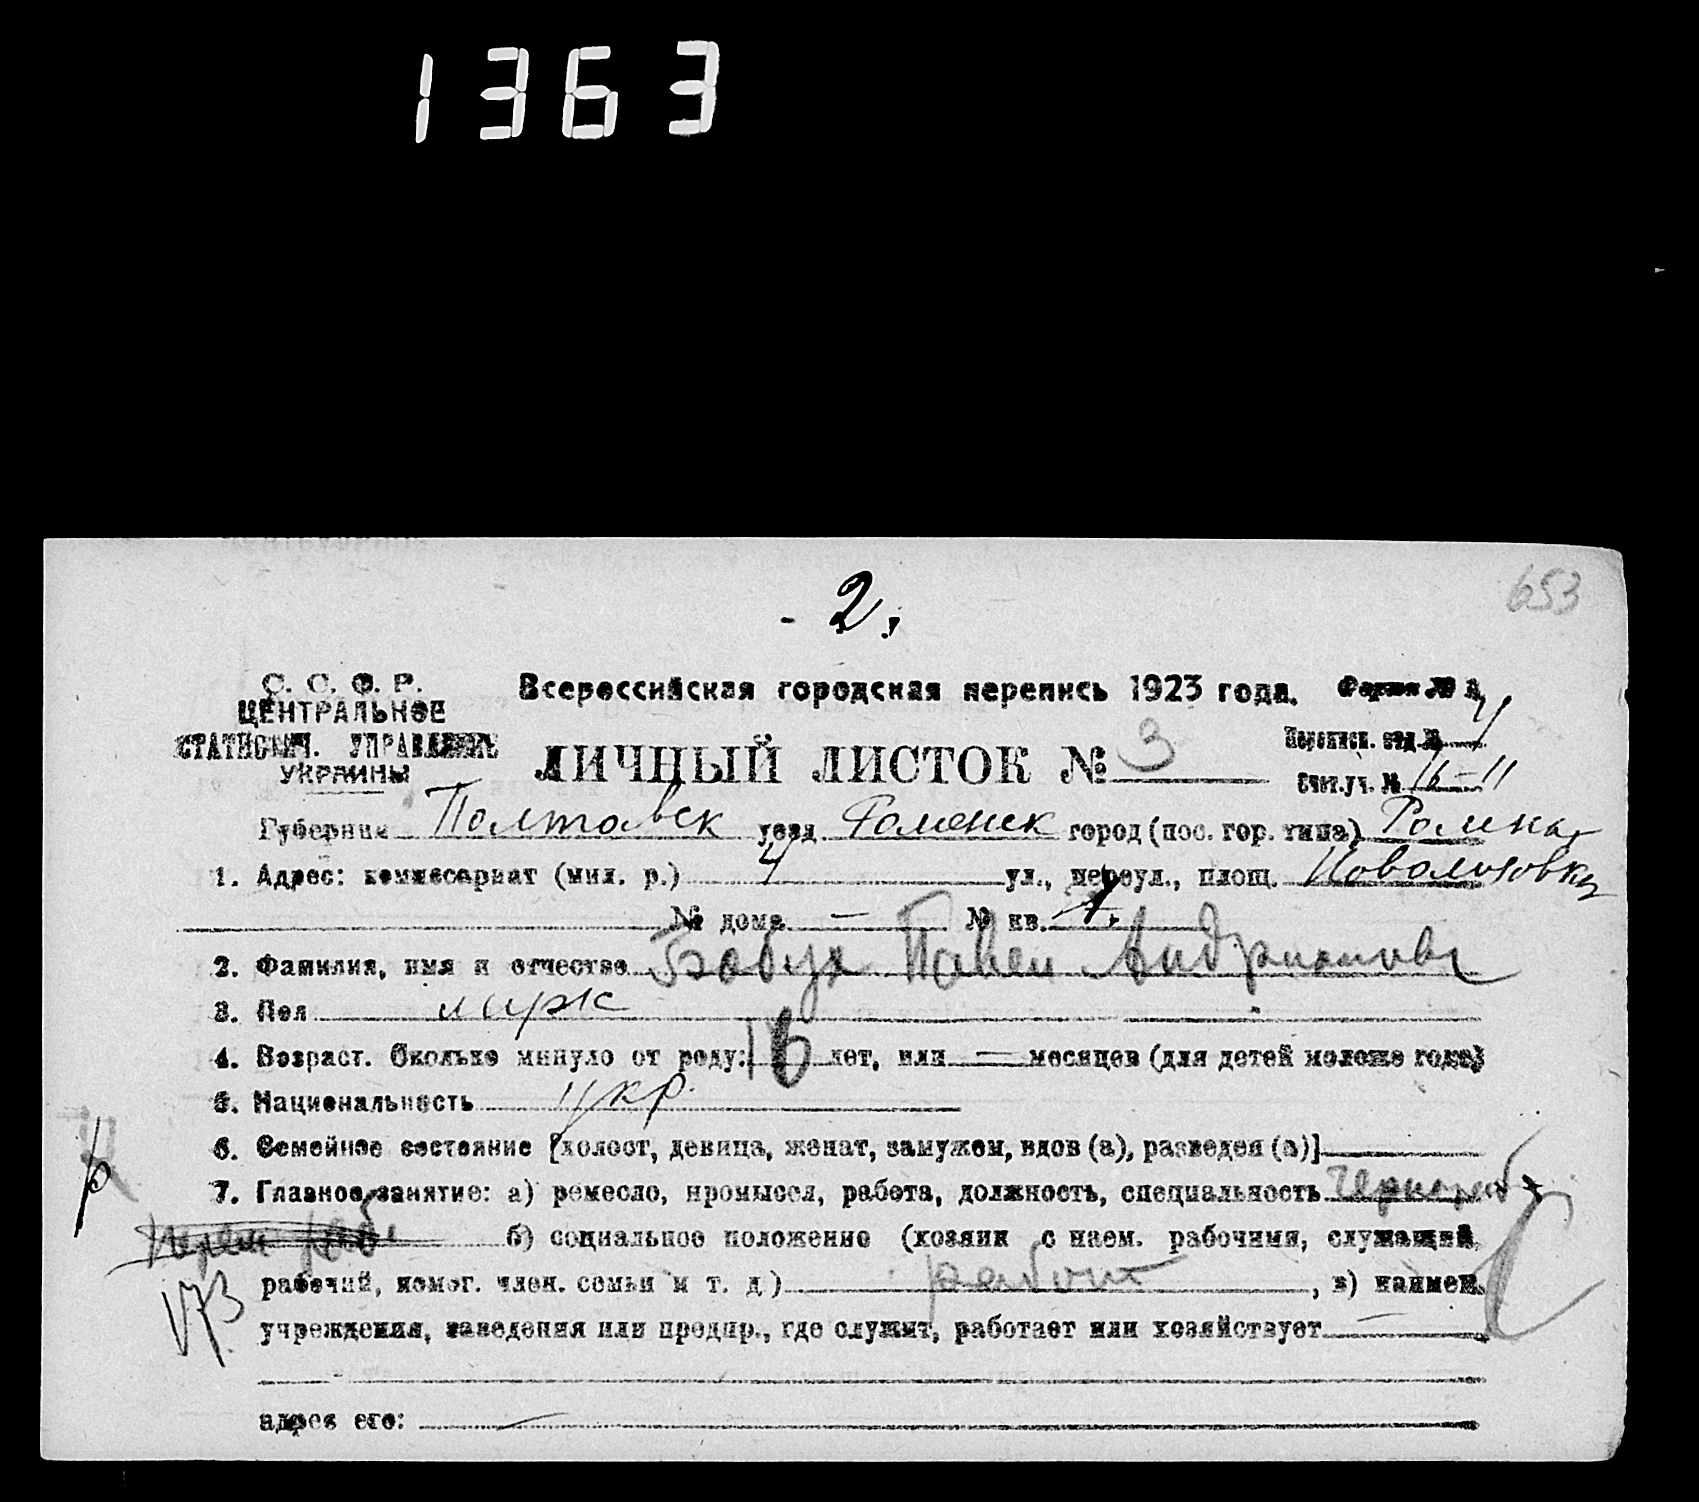 1363
653
- 2.
С. С. Ф. Р.
ЦЕНТРАЛЬНОЕ
СТАТИСТИЧ. УПРАВЛЕНИЕ
УКРАИНЫ
Всероссийская городская перепись 1923 года.
Форма №
ЛИЧНЫЙ ЛИСТОК № 3
Переписн. отд. №
Счет. уч. №
Губерния Полтавск уезд Роменск город (пос. гор. типа) Ромны
1. Адрес: комиссариат (мил. р.) 4 ул., переул., площ.
№ дома — № кв.
2. Фамилия, имя и отчество Бабух Павел Андрианович
3. Пол мужк
4. Возраст. Сколько минуло от роду: 16 лет, или — месяцев (для детей моложе года)
5. Национальность укр.
6. Семейное состояние [холост, девица, женат, замужем, вдов (а), разведен (а)]
7. Главное занятие: а) ремесло, промысел, работа, должность, специальность чернораб
б) социальное положение (хозяин с наем. рабочими, служащий,
рабочий, помог. член. семьи и т. д.) работ , в) наимен.
173
учреждения, заведения или предпр., где служит, работает или хозяйствует —
адрес его: —